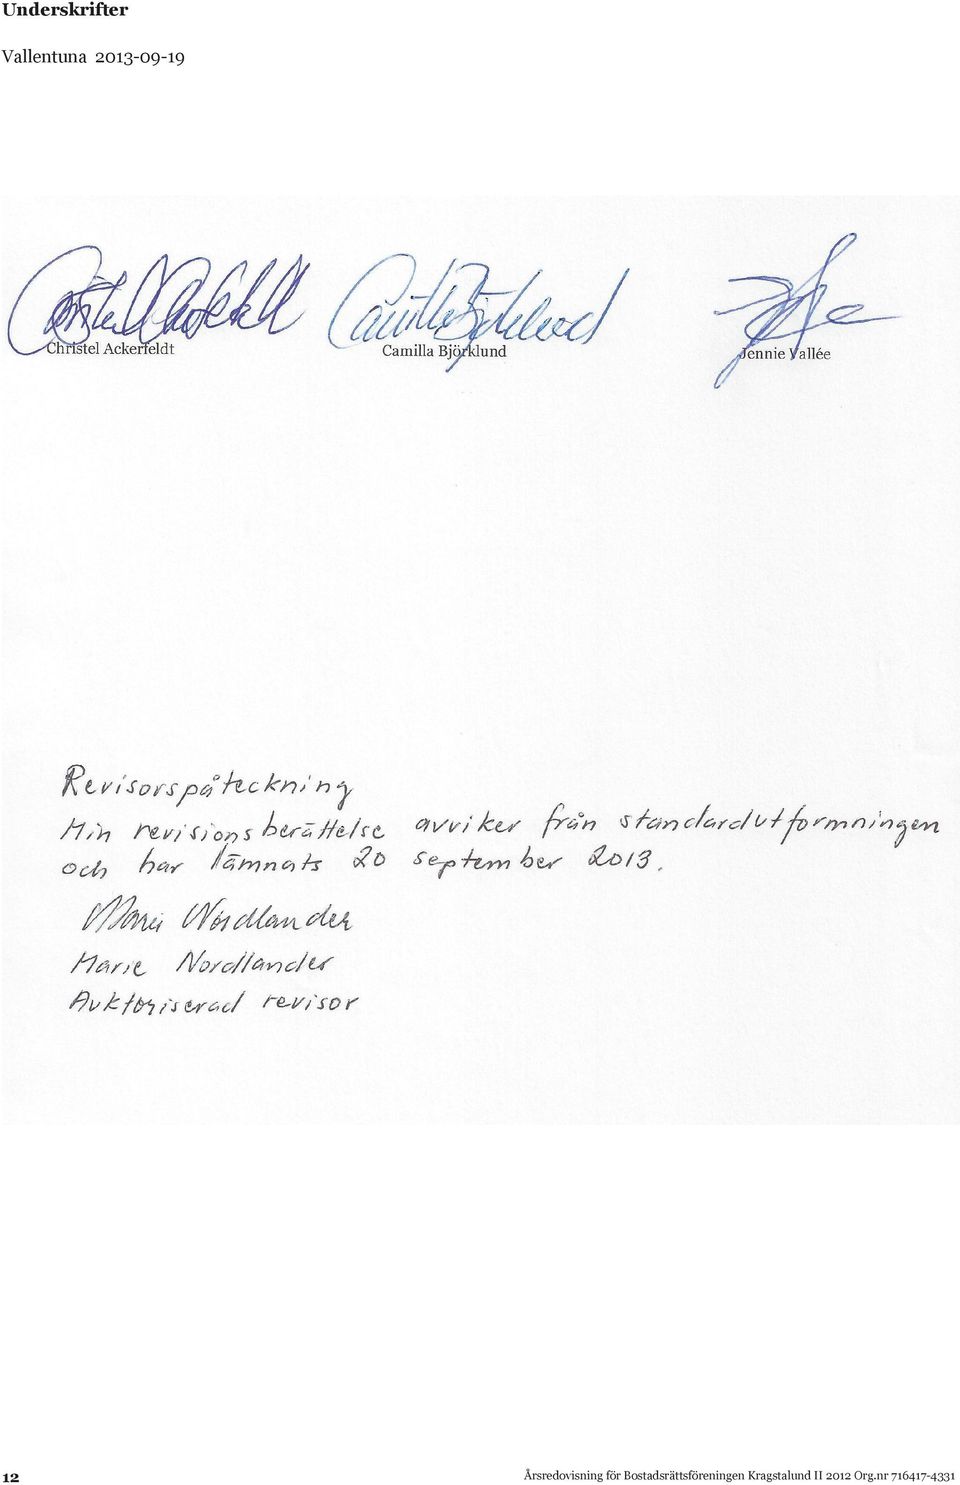 Underskrifter
Vallentuna 2013-09-19
Christel Ackerfeldt Camilla Björklund Jennie Vallée
Christel Ackerfeldt Camilla Björklund Jennie Vallée
Revisorspåteckning
Min revisionsberättelse avviker från standardutformningen
och har lämnats 20 september 2013.
Marie Nordlander
Marie Nordlander
Auktoriserad revisor
12 Årsredovisning för Bostadsrättsföreningen Kragstalund II 2012 Org.nr 716417-4331